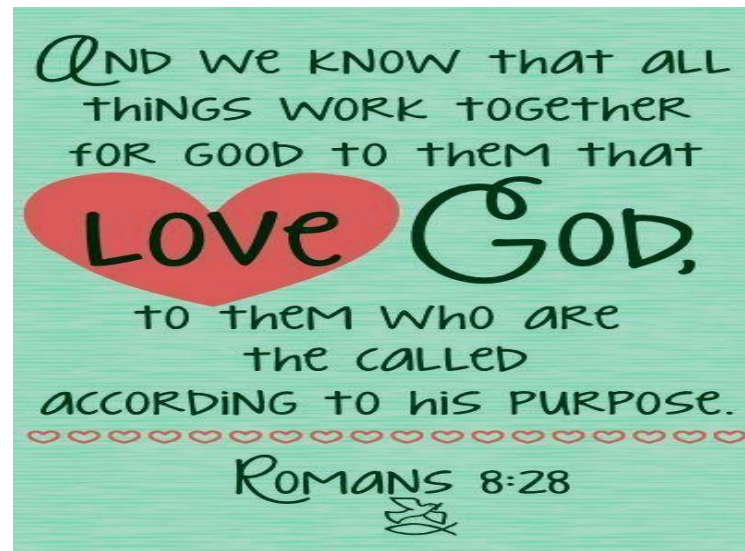 And we know that all
things work together
for good to them that
Love God,
to them who are
the called
according to his purpose.
Romans 8:28